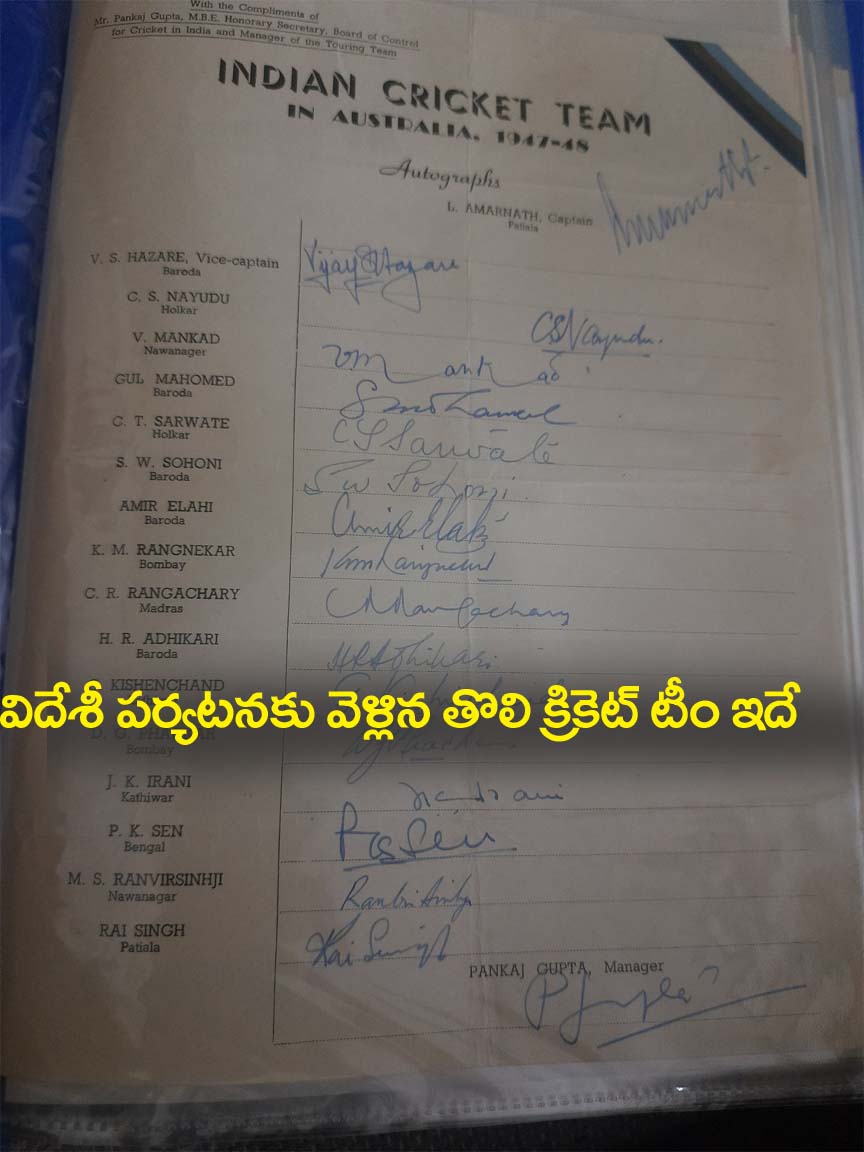 With the Compliments of
Mr. Pankaj Gupta, M.B.E. Honorary Secretary, Board of Control
for Cricket in India and Manager of the Touring Team
INDIAN CRICKET TEAM
IN AUSTRALIA, 1947-48
Autographs
L. AMARNATH, Captain
Patiala
V. S. HAZARE, Vice-captain
Baroda
Vijay S Hazare
C. S. NAYUDU
Holkar
CSNayudu.
V. MANKAD
Nawanager
VMankad
GUL MAHOMED
Baroda
C. T. SARWATE
Holkar
CTSarwate
S. W. SOHONI
Baroda
SW Sohoni.
AMIR ELAHI
Baroda
Amir Elahi
K. M. RANGNEKAR
Bombay
KMRangnekar
C. R. RANGACHARY
Madras
CRRangachary
H. R. ADHIKARI
Baroda
HRAdhikari
KISHENCHAND
విదేశీ పర్యటనకు వెళ్లిన తొలి క్రికెట్ టీం ఇదే
D. G.
Bombay
J. K. IRANI
Kathiwar
P. K. SEN
Bengal
PSen
M. S. RANVIRSINHJI
Nawanagar
RAI SINGH
Patiala
Rai Singh
PANKAJ GUPTA, Manager
PGupta